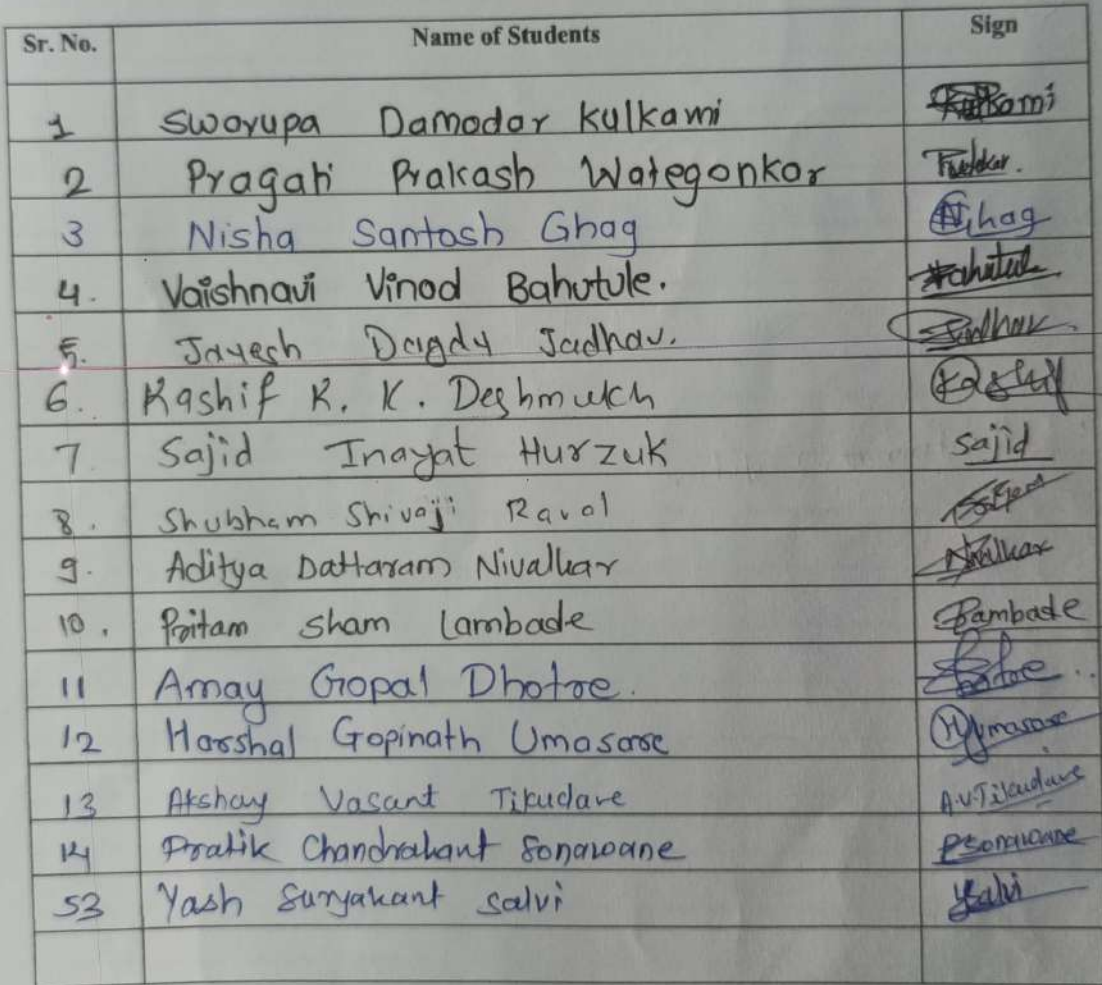 Sr. No. Name of Students Sign
1 Swarupa Damodar Kulkarni
2 Pragati Prakash Wategonkar
3 Nisha Santosh Ghag Ghag
4. Vaishnavi Vinod Bahutule. Bahutule
5. Jayesh Dagdu Jadhav. Jadhav.
6. Kashif R. K. Deshmukh Kashif
7 Sajid Inayat Hurzuk Sajid
8. Shubham Shivaji Raval
9. Aditya Dattaram Nivalkar Nivalkar
10. Pritam Sham Lambade Lambade
11 Amay Gopal Dhotre.
12 Harshal Gopinath Umasare HUmasare
13 Akshay Vasant Tikudave A.V.Tikudave
14 Pratik Chandrakant Sonawane PSonawane
53 Yash Suryakant Salvi YSalvi